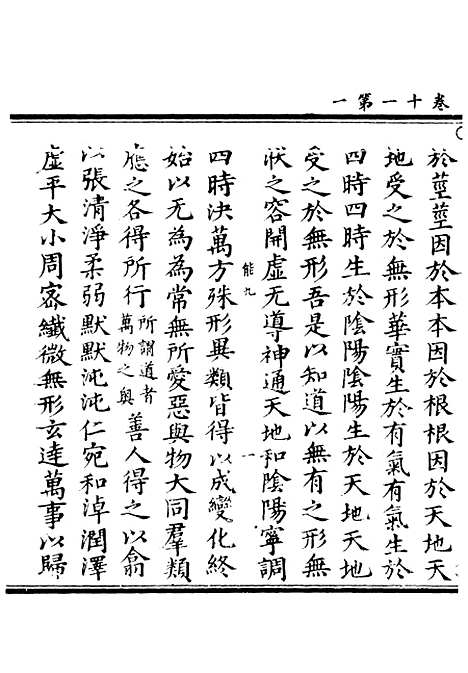 卷十一第一
於莖莖因於本本因於根根因於天地天
地受之於無形華實生於有氣有氣生於
四時四時生於陰陽陰陽生於天地天地
受之於無形吾是以知道以無有之形無
狀之容開虛无導神通天地和陰陽寧調
能九
一
四時決萬方殊形異類皆得以成變化終
始以无為為常無所愛惡與物大同羣類
應之各得所行所謂道者萬物之奧善人得之以翕
以張清淨柔弱默默沌沌仁宛和淖潤澤
虛平大小周密纖微無形玄達萬事以歸